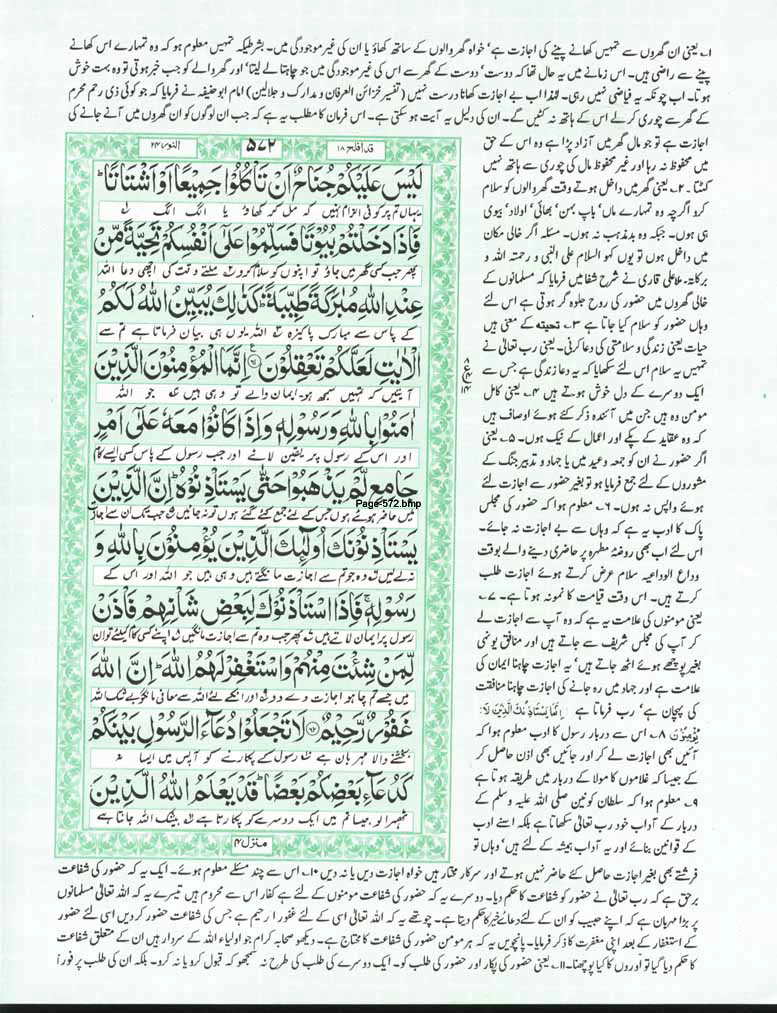 ۱۔ یعنی ان گھروں سے تمہیں کھانے پینے کی اجازت ہے' خواہ گھر والوں کے ساتھ کھاؤ یا ان کی غیر موجودگی میں۔ بشرطیکہ تمہیں معلوم ہو کہ وہ تمہارے اس کھانے
پینے سے راضی ہیں۔ اس زمانے میں یہ حال تھا کہ دوست' دوست کے گھر سے اس کی غیر موجودگی میں جو چاہتا لے لیتا' اور گھر والے کو جب خبر ہوتی تو وہ بہت خوش
ہوتا۔ اب چونکہ یہ فیاضی نہیں رہی۔ لہذا اب بے اجازت کھانا درست نہیں (تفسیر خزائن العرفان و مدارک و جلالین) امام ابو حنیفہ نے فرمایا کہ جو کوئی ذی رحم محرم
کے گھر سے چوری کرلے اس کے ہاتھ نہ کٹیں گے۔ ان کی دلیل یہ آیت ہو سکتی ہے۔ اس فرمان کا مطلب یہ ہے کہ جب ان لوگوں کو ان گھروں میں آنے جانے کی
اجازت ہے تو جو مال گھر میں آزاد پڑا ہے وہ اس کے حق
میں محفوظ نہ رہا اور غیر محفوظ مال کی چوری سے ہاتھ نہیں
کٹتا۔ ۲۔ یعنی گھر میں داخل ہوتے وقت گھر والوں کو سلام
کرو اگرچہ وہ تمہارے ماں' باپ بہن' بھائی' اولاد' بیوی
ہی ہوں۔ جبکہ وہ بدمذہب نہ ہوں۔ مسئلہ اگر خالی مکان
میں داخل ہوں تو یوں کہو السلام علی النبی و رحمتہ اللہ و
برکاتہ۔ ملا علی قاری نے شرح شفا میں فرمایا کہ مسلمانوں کے
خالی گھروں میں حضور کی روح جلوہ گر ہوتی ہے اس لئے
وہاں حضور کو سلام کیا جاتا ہے ۳۔ تحیتہ کے معنی ہیں
حیات یعنی زندگی و سلامتی کی دعا کرنی۔ یعنی رب تعالیٰ نے
تمہیں یہ سلام اس لئے سکھایا کہ یہ دعا زندگی ہے جس سے
ایک دوسرے کے دل خوش ہوتے ہیں ۴۔ یعنی کامل
مومن وہ ہیں جن میں آئندہ ذکر کئے ہوئے اوصاف ہیں
کہ وہ عقاید کے پکے اور اعمال کے نیک ہوں۔ ۵۔ یعنی
اگر حضور نے ان کو جمعہ و عید میں یا جہاد و تدبیر جنگ کے
مشوروں کے لئے جمع فرمایا ہو تو بغیر حضور سے اجازت لئے
ہوئے واپس نہ ہوں۔ ۶۔ معلوم ہوا کہ حضور کی مجلس
پاک کا ادب یہ ہے کہ وہاں سے بے اجازت نہ جائے۔
اس لئے اب بھی روضۂ مطہرہ پر حاضری دینے والے بوقت
وداع الوداعیہ سلام عرض کرتے ہوئے اجازت طلب
کرتے ہیں۔ اس وقت قیامت کا نمونہ ہوتا ہے۔ ۷۔
یعنی مومنوں کی علامت یہ ہے کہ وہ آپ سے اجازت لے
کر آپ کی مجلس شریف سے جاتے ہیں اور منافق یونہی
بغیر پوچھے ہوئے اٹھ جاتے ہیں' یہ اجازت چاہنا ایمان کی
علامت ہے اور جہاد میں رہ جانے کی اجازت چاہنا منافقت
کی پہچان ہے' رب فرماتا ہے اِنَّمَا یَسْتَاْذِنُکَ الَّذِیْنَ لَا
یُؤْمِنُوْنَ ۸۔ اس سے دربار رسول کا ادب معلوم ہوا کہ
آئیں بھی اجازت لے کر اور جائیں بھی اذن حاصل کر
کے جیسا کہ غلاموں کا مولا کے دربار میں طریقہ ہوتا ہے
۹۔ معلوم ہوا کہ سلطان کونین صلی اللہ علیہ وسلم کے
دربار کے آداب خود رب تعالیٰ سکھاتا ہے بلکہ اسنے ادب
کے قوانین بنائے اور یہ آداب ہمیشہ کے لئے ہیں' وہاں تو
قد افلح ۱۸ ۵۷۲ النور ۲۴
لَيْسَ عَلَيْكُمْ جُنَاحٌ اَنْ تَاْكُلُوْا جَمِيْعًا اَوْ اَشْتَاتًا ؕ
یہاں تم پر کوئی الزام نہیں کہ مل کر کھاؤ یا الگ الگ
فَاِذَا دَخَلْتُمْ بُيُوْتًا فَسَلِّمُوْا عَلٰۤى اَنْفُسِكُمْ تَحِيَّةً مِّنْ
پھر جب کسی گھر میں جاؤ تو اپنوں کو سلام کرو ملتے وقت کی اچھی دعا اللہ
عِنْدِ اللّٰهِ مُبٰرَكَةً طَيِّبَةً ؕ كَذٰلِكَ يُبَيِّنُ اللّٰهُ لَكُمُ
کے پاس سے مبارک پاکیزہ اللہ یوں ہی بیان فرماتا ہے تم سے
الْاٰيٰتِ لَعَلَّكُمْ تَعْقِلُوْنَ اِنَّمَا الْمُؤْمِنُوْنَ الَّذِيْنَ
آیتیں کہ تمہیں سمجھ ہو۔ ایمان والے تو وہی ہیں جو اللہ
اٰمَنُوْا بِاللّٰهِ وَرَسُوْلِهٖ وَاِذَا كَانُوْا مَعَهٗ عَلٰۤى اَمْرٍ
اور اس کے رسول پر یقین لائے اور جب رسول کے پاس کسی ایسے کام
جَامِعٍ لَّمْ يَذْهَبُوْا حَتّٰى يَسْتَاْذِنُوْهُ ؕ اِنَّ الَّذِيْنَ
Page-572.bmp
میں حاضر ہوئے ہوں جس کے لئے جمع کئے گئے ہوں تو نہ جائیں جب تک ان سے اجازت
يَسْتَاْذِنُوْنَكَ اُولٰٓئِكَ الَّذِيْنَ يُؤْمِنُوْنَ بِاللّٰهِ وَ
نہ لے لیں وہ جو تم سے اجازت مانگتے ہیں وہی ہیں جو اللہ اور اس کے
رَسُوْلِهٖ ۚ فَاِذَا اسْتَاْذَنُوْكَ لِبَعْضِ شَاْنِهِمْ فَاْذَنْ
رسول پر ایمان لاتے ہیں پھر جب وہ تم سے اجازت مانگیں اپنے کسی کام کیلئے تو ان
لِّمَنْ شِئْتَ مِنْهُمْ وَاسْتَغْفِرْ لَهُمُ اللّٰهَ ؕ اِنَّ اللّٰهَ
میں جسے تم چاہو اجازت دے دو اور انکے لئے اللہ سے معافی مانگو بے شک اللہ
غَفُوْرٌ رَّحِيْمٌ لَا تَجْعَلُوْا دُعَآءَ الرَّسُوْلِ بَيْنَكُمْ
بخشنے والا مہربان ہے رسول کے پکارنے کو آپس میں ایسا نہ
كَدُعَآءِ بَعْضِكُمْ بَعْضًا ؕ قَدْ يَعْلَمُ اللّٰهُ الَّذِيْنَ
ٹھہرا لو جیسا تم میں ایک دوسرے کو پکارتا ہے بیشک اللہ جانتا ہے
منزل ۴
فرشتے بھی بغیر اجازت حاصل کئے حاضر نہیں ہوتے اور سرکار مختار ہیں خواہ اجازت دیں یا نہ دیں ۱۰۔ اس سے چند مسئلے معلوم ہوئے۔ ایک یہ کہ حضور کی شفاعت
برحق ہے کہ رب تعالیٰ نے حضور کو شفاعت کا حکم دیا۔ دوسرے یہ کہ حضور کی شفاعت مومنوں کے لئے ہے کفار اس سے محروم ہیں تیسرے یہ کہ اللہ تعالیٰ مسلمانوں
پر بڑا مہربان ہے کہ اپنے حبیب کو ان کے لئے دعائے خیر کا حکم دیتا ہے۔ چوتھے یہ کہ اللہ تعالیٰ اسی کے لئے غفور رحیم ہے جس کی شفاعت حضور کر دیں اسی لئے حضور
کے استغفار کے بعد اپنی مغفرت کا ذکر فرمایا۔ پانچویں یہ کہ ہر مومن حضور کی شفاعت کا محتاج ہے۔ دیکھو صحابہ کرام جو اولیاء اللہ کے سردار ہیں ان کے متعلق شفاعت
کا حکم دیا گیا تو اوروں کا کیا پوچھنا۔ ۱۱۔ یعنی حضور کی پکار اور حضور کی طلب کو۔ ایک دوسرے کی طلب کی طرح نہ سمجھو کہ قبول کرو یا نہ کرو۔ بلکہ ان کی طلب پر فوراً